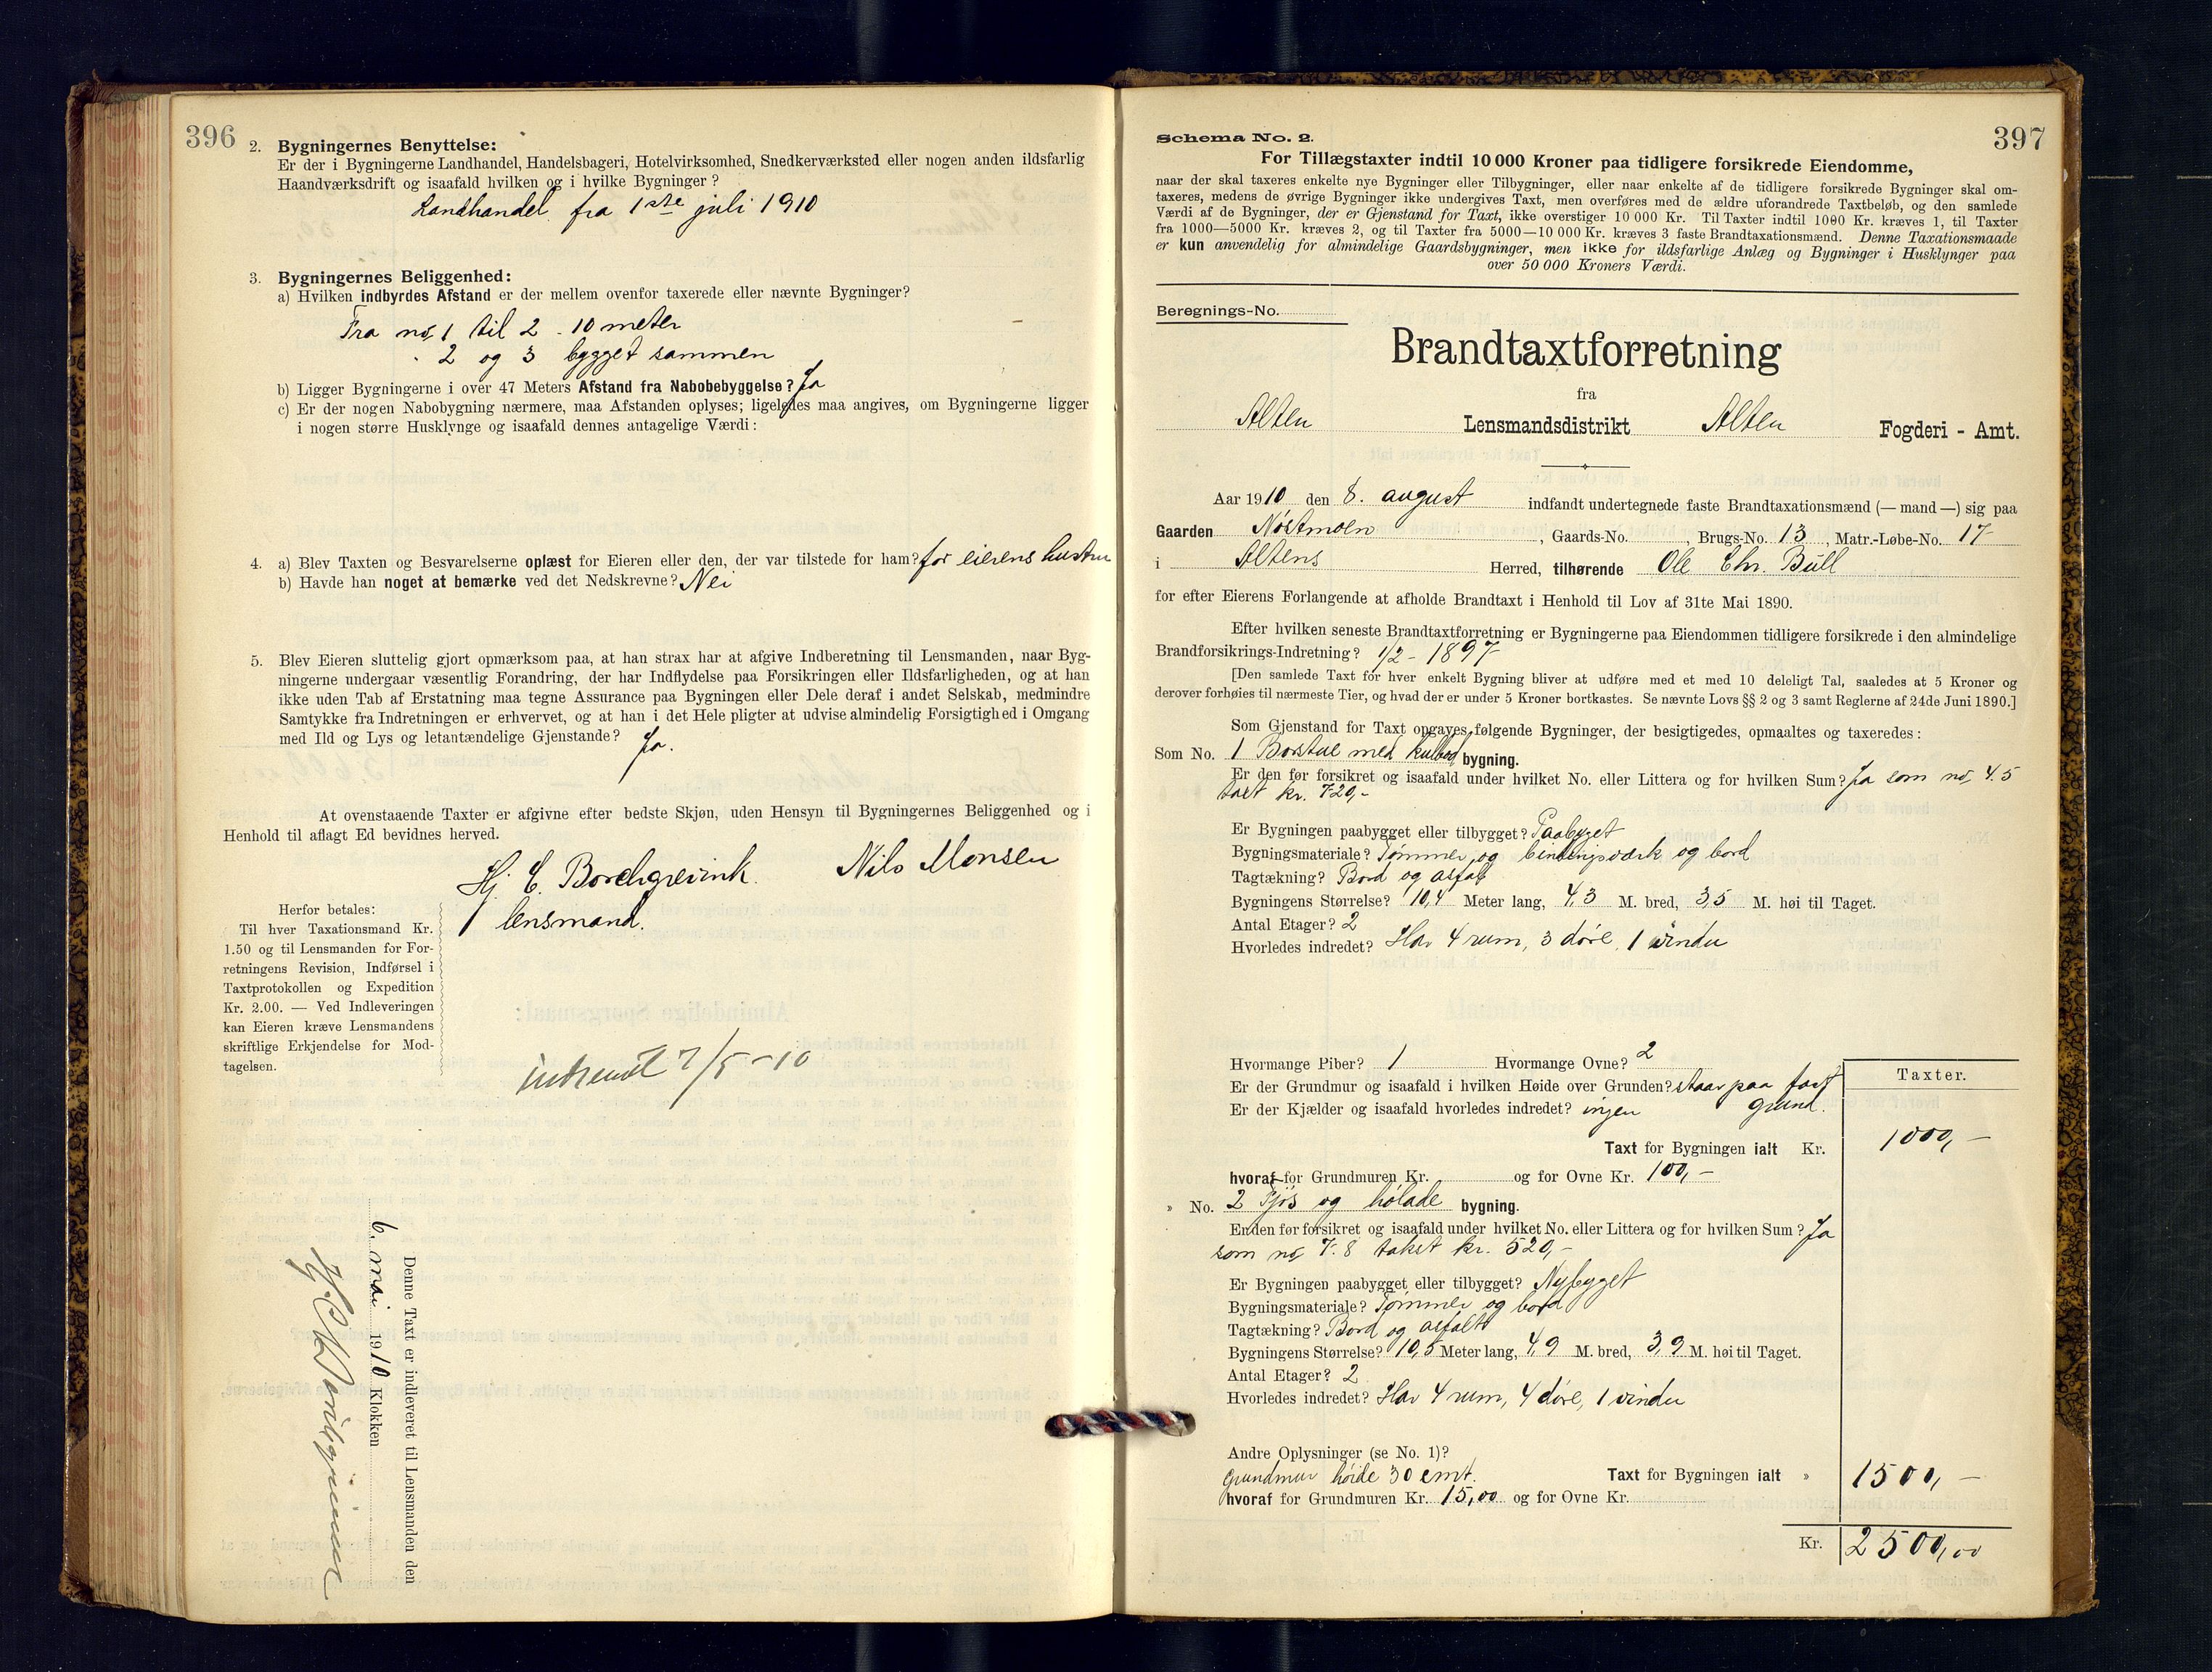 396
2. Bygningernes Benyttelse:
Er der i Bygningerne Landhandel, Handelsbageri, Hotelvirksomhed, Snedkerværksted eller nogen anden ildsfarlig
Haandværksdrift og isaafald hvilken og i hvilke Bygninger?
Landhandel fra 1ste juli 1910
3. Bygningernes Beliggenhed:
a) Hvilken indbyrdes Afstand er der mellem ovenfor taxerede eller nævnte Bygninger?
Fra no, 1 til 2 - 10 meter
" 2 og 3 bygget sammen
b) Ligger Bygningerne i over 47 Meters Afstand fra Nabobebyggelse? Ja
c) Er der nogen Nabobygning nærmere, maa Afstanden oplyses; ligeledes maa angives, om Bygningerne ligger
i nogen større Husklynge og isaafald dennes antagelige Værdi:
4. a) Blev Taxten og Besvarelserne oplæst for Eieren eller den, der var tilstede for ham? for eierens hustru
b) Havde han noget at bemærke ved det Nedskrevne? Nei
5. Blev Eieren sluttelig gjort opmærksom paa, at han strax har at afgive Indberetning til Lensmanden, naar Byg-
ningerne undergaar væsentlig Forandring, der har Indflydelse paa Forsikringen eller Ildsfarligheden, og at han
ikke uden Tab af Erstatning maa tegne Assurance paa Bygningen eller Dele deraf i andet Selskab, medmindre
Samtykke fra Indretningen er erhvervet, og at han i det Hele pligter at udvise almindelig Forsigtighed i Omgang
med Ild og Lys og letantændelige Gjenstande? Ja.
At ovenstaaende Taxter er afgivne efter bedste Skjøn, uden Hensyn til Bygningernes Beliggenhed og i
Henhold til aflagt Ed bevidnes herved.
Hj C. Borchgrevink. Nils Monsen
lensmand.
Herfor betales:
Til hver Taxationsmand Kr.
1.50 og til Lensmanden for For-
retningens Revision, Indførsel i
Taxtprotokollen og Expedition
Kr. 2.00. — Ved Indleveringen
kan Eieren kræve Lensmandens
skriftlige Erkjendelse for Mod-
tagelsen.
indsendt 7/5 - 10
Denne Taxt er indleveret til Lensmanden den
6. mai 1910 Klokken
Hj C Borchgrevink
397
Schema No. 2.
For Tillægstaxter indtil 10 000 Kroner paa tidligere forsikrede Eiendomme,
naar der skal taxeres enkelte nye Bygninger eller Tilbygninger, eller naar enkelte af de tidligere forsikrede Bygninger skal om-
taxeres, medens de øvrige Bygninger ikke undergives Taxt, men overføres med de ældre uforandrede Taxtbeløb, og den samlede
Værdi af de Bygninger, der er Gjenstand for Taxt, ikke overstiger 10 000 Kr. Til Taxter indtil 1000 Kr. kræves 1, til Taxter
fra 1000—5000 Kr. kræves 2, og til Taxter fra 5000—10 000 Kr. kræves 3 faste Brandtaxationsmænd. Denne Taxationsmaade
er kun anvendelig for almindelige Gaardsbygninger, men ikke for ildsfarlige Anlæg og Bygninger i Husklynger paa
over 50 000 Kroners Værdi.
Beregnings-No.
Brandtaxtforretning
fra
Alten Lensmandsdistrikt Alten Fogderi - Amt.
Aar 1910 den 8. august indfandt undertegnede faste Brandtaxationsmænd (— mand —) sig paa
Gaarden Nöstmoen, Gaards-No. , Brugs-No. 13, Matr.-Løbe-No. 17
i Altens Herred, tilhørende Ole Chr. Bull
for efter Eierens Forlangende at afholde Brandtaxt i Henhold til Lov af 31te Mai 1890.
Efter hvilken seneste Brandtaxtforretning er Bygningerne paa Eiendommen tidligere forsikrede i den almindelige
Brandforsikrings-Indretning? 1/2 - 1897
[Den samlede Taxt for hver enkelt Bygning bliver at udføre med et med 10 deleligt Tal, saaledes at 5 Kroner og
derover forhøies til nærmeste Tier, og hvad der er under 5 Kroner bortkastes. Se nævnte Lovs §§ 2 og 3 samt Reglerne af 24de Juni 1890.]
Som Gjenstand for Taxt opgaves følgende Bygninger, der besigtigedes, opmaaltes og taxeredes:
Som No. 1 Borstue med bygning.
Er den før forsikret og isaafald under hvilket No. eller Littera og for hvilken Sum? Ja som no, 4. 5
taxt kr. 720,-
Er Bygningen paabygget eller tilbygget? Paabyget
Bygningsmateriale? Tömmer, og bindingsværk og bord
Tagtækning? Bord og asfalt
Bygningens Størrelse? 10,4 Meter lang, 4,3 M. bred, 3,5 M. høi til Taget.
Antal Etager? 2
Hvorledes indredet? Har 4 rum, 3 döre, 1 vindu
Hvormange Piber? 1 Hvormange Ovne? 2
Taxter.
Er der Grundmur og isaafald i hvilken Høide over Grunden? staar paa fast
grund.
Er der Kjælder og isaafald hvorledes indredet? ingen
Taxt for Bygningen ialt Kr. 1000,-
hvoraf for Grundmuren Kr. og for Ovne Kr. 100,-
» No. 2 Fjös og hölade bygning.
Er den før forsikret og isaafald under hvilket No. eller Littera og for hvilken Sum? Ja
som no, 7. 8 takst kr. 520,-
Er Bygningen paabygget eller tilbygget? Nybygget
Bygningsmateriale? Tömmer og bord
Tagtækning? Bord og asfalt
Bygningens Størrelse? 10,5 Meter lang, 4,9 M. bred, 3,9 M. høi til Taget.
Antal Etager? 2
Hvorledes indredet? Har 4 rum, 4 döre, 1 vindu
Andre Oplysninger (se No. 1)?
Grundmur höide 30 cmt. Taxt for Bygningen ialt » 1500,-
hvoraf for Grundmuren Kr. 15,00 og for Ovne Kr.
Kr. 2500,00